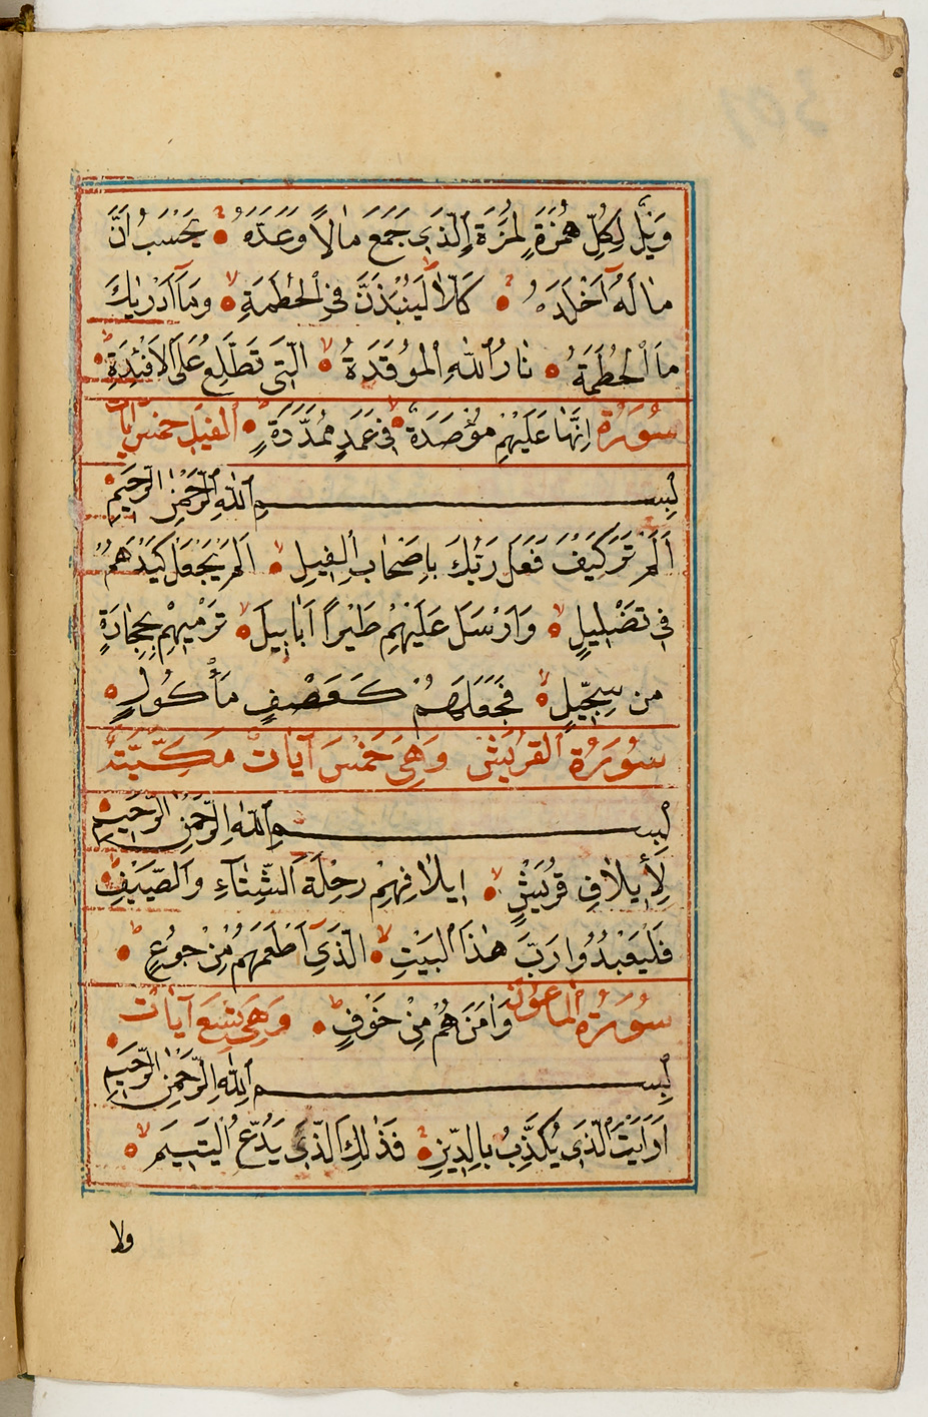 وَيْلٌ لِكُلِّ هُمَزَةٍ لُمَزَةٍ اِلَّذَى جَمَعَ مَالًا وَعَدَّدَهُ يَحْسَبُ اَنَّ
مَا لَهُ اَخْلَدَهُ كَلَّا لَيُنْبَذَنَّ فِى الْحُطَمَةِ وَمَا اَدْرٰيكَ
مَا الْحُطَمَةُ نَارُ اللّٰهِ الْمُوقَدَةُ الَّتِى تَطَّلِعُ عَلَى الْاَفْئِدَةِ
سُورَةُ اِنَّهَا عَلَيْهِمْ مُؤْصَدَةٌ فِى عَمَدٍ مُمَدَّدَةٍ الفيل خمس آيات
بِسْمِ اللّٰهِ الرَّحْمٰنِ الرَّحِيمِ
اَلَمْ تَرَ كَيْفَ فَعَلَ رَبُّكَ بِاَصْحَابِ الْفِيلِ اَلَمْ يَجْعَلْ كَيْدَهُمْ
فِى تَضْلِيلٍ وَاَرْسَلَ عَلَيْهِمْ طَيْرًا اَبَابِيلَ تَرْمِيهِمْ بِحِجَارَةٍ
مِنْ سِجِّيلٍ فَجَعَلَهُمْ كَعَصْفٍ مَأْكُولٍ
سُورَةُ القُرَيْش وَهِىَ خَمْسَ آيَات مَكِّيَّة
بِسْمِ اللّٰهِ الرَّحْمٰنِ الرَّحِيمِ
لِأِيلَافِ قُرَيْشٍ اِيلَافِهِمْ رِحْلَةَ الشِّتَاءِ وَالصَّيْفِ
فَلْيَعْبُدُوا رَبَّ هٰذَا الْبَيْتِ الَّذِى اَطْعَمَهُمْ مِنْ جُوعٍ
سُورَةُ الْمَاعُون وَاٰمَنَهُمْ مِنْ خَوْفٍ وَهِىَ سَبْعَ آيَات
بِسْمِ اللّٰهِ الرَّحْمٰنِ الرَّحِيمِ
اَرَاَيْتَ الَّذِى يُكَذِّبُ بِالدِّينِ فَذٰلِكَ الَّذِى يَدُعُّ الْيَتِيمَ
ولا